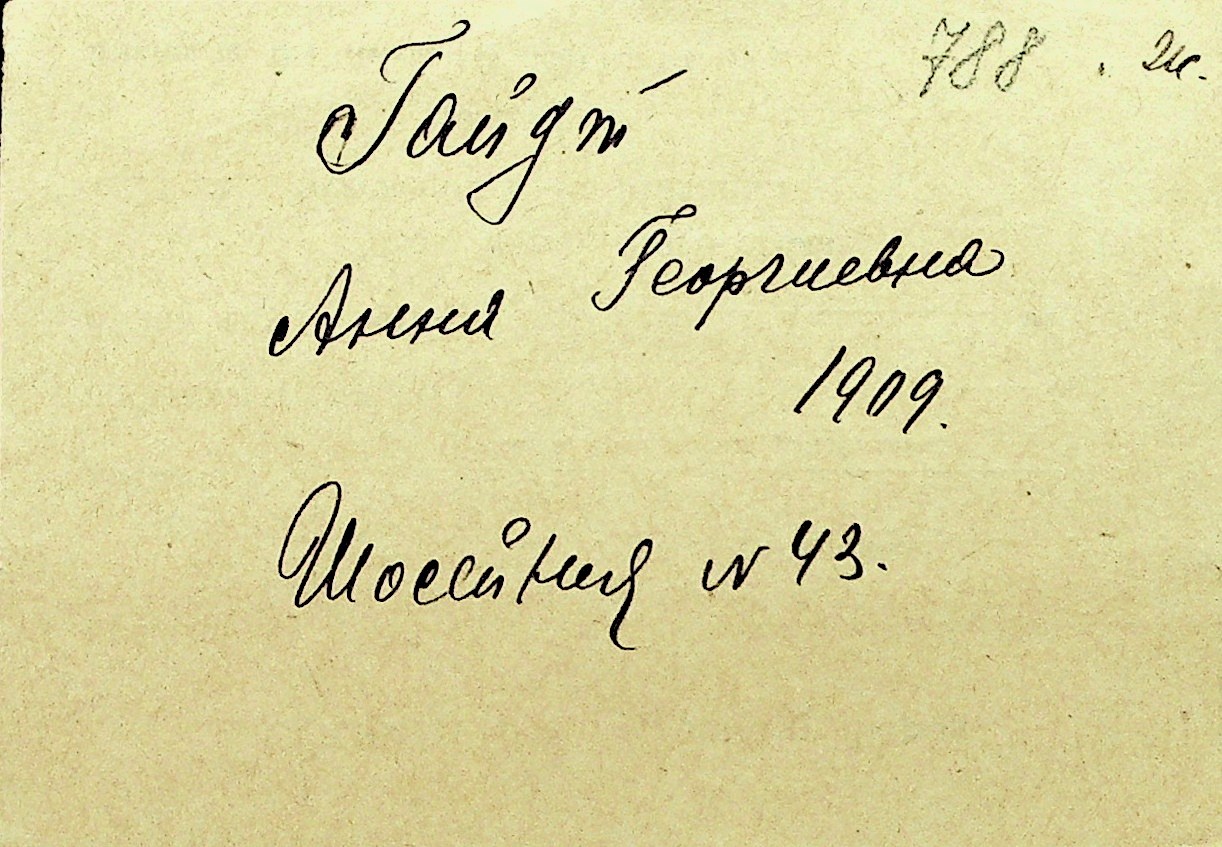 788. ж.
Гайдт
Анна Георгиевна
1909.
Шоссейная N 43.